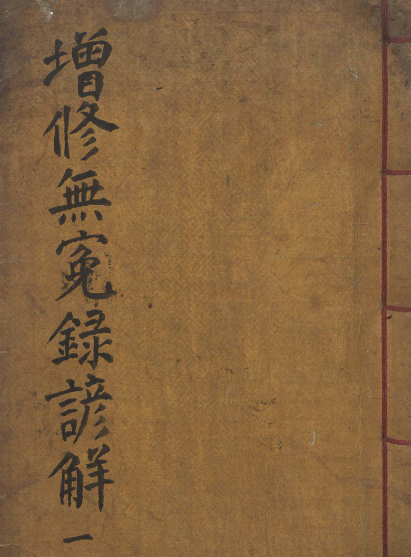 增修無冤錄諺解一